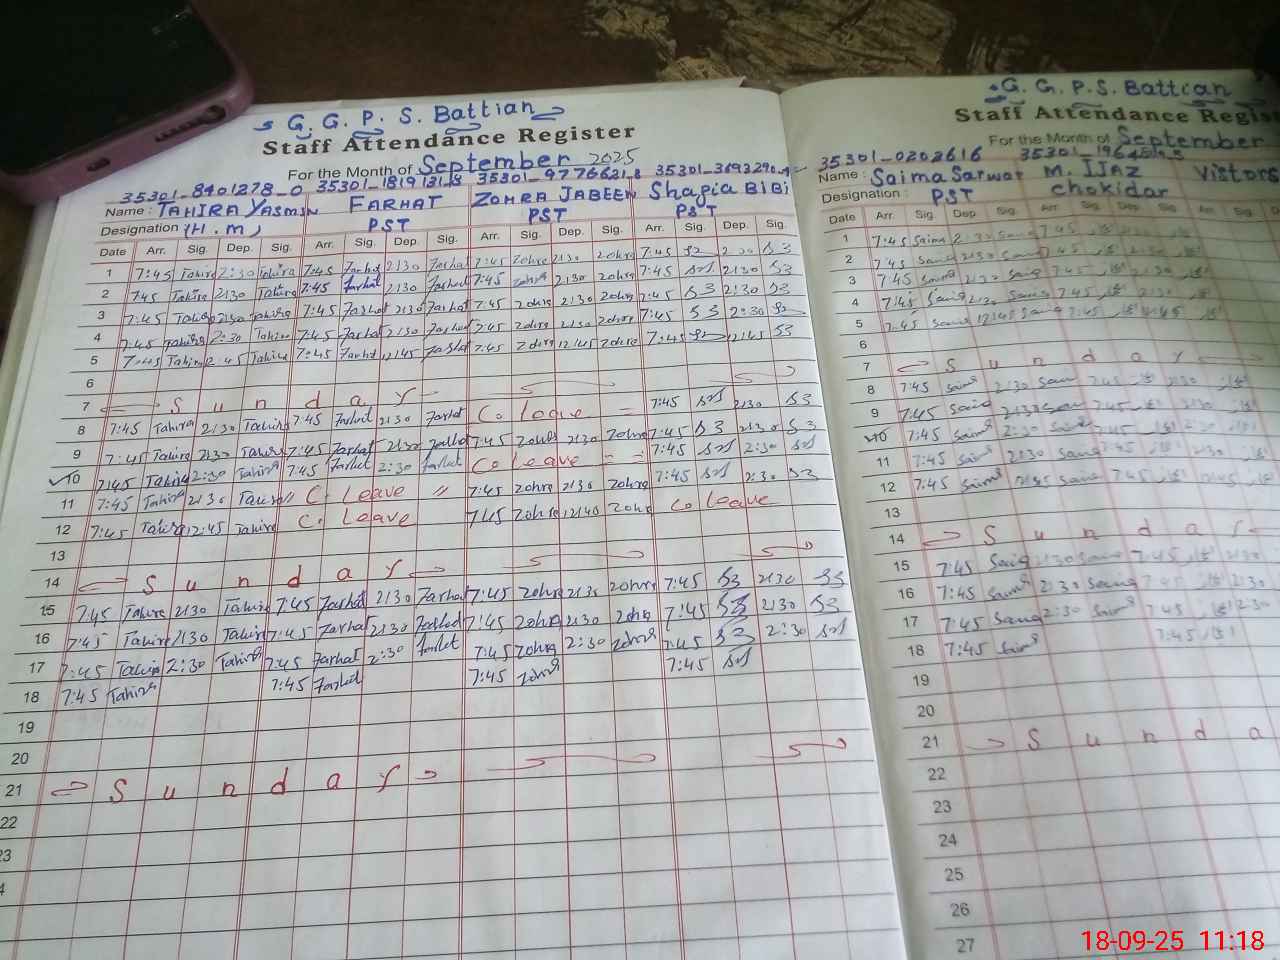 G. G. P. S. Battian
Staff Attendance Register
For the Month of September 2025
35301-8401278-0 35301-1819131-8 35301-9776621-8
Name: TAHIRA YASMIN FARHAT ZOHRA JABEEN Shagia BiBi
Designation (H.M) PST PST PST
Date Arr. Sig. Dep. Sig. Arr. Sig. Dep. Sig. Arr. Sig. Dep. Sig. Arr. Sig. Dep. Sig.
1 7:45 Tahira 2:30 Tahira 7:45 Farhat 2130 Farhat 7:45 Zohra 2130 Zohra 7:45
2 745 Tahira 2130 Tahira 7:45 Farhat 2130 Farhat 7:45 Zohra 2130 Zohra 7:45 2130 S3
3 7:45 Tahira 2130 Tahira 7:45 Farhat 2130 Farhat 7:45 Zohra 2130 Zohra 7:45 S3 2:30 S3
4 7:45 Tahira 2:30 Tahira 7:45 Farhat 2130 Farhat 7:45 Zohra 2130 Zohra 7:45 S3 2:30
5 7:45 Tahira 2:45 Tahira 7:45 Farhat 12145 Farhat 7:45 Zohra 12145 Zohra 7:45 12145 S3
6
7 S u n d a y
8 7:45 Tahira 2130 Tahira 7:45 Farhat 2130 Farhat C. leave = 7:45 2130 S3
9 7:45 Tahira 2130 Tahira 7:45 Farhat 2130 Farhat 7:45 Zohra 2130 Zohra 7:45 S3 2130 S3
10 7:45 Tahira 2:30 Tahira 7:45 Farhat 2:30 Farhat C. leave = = 7:45 2:30
11 7:45 Tahira 2130 Tahira " C. Leave " 7:45 Zohra 2130 Zohra 7:45 2:30 S3
12 7:45 Tahira 12:45 Tahira C. Leave 7:45 Zohra 12140 Zohr C. leave
13
14 S u n d a y
15 7:45 Tahira 2130 Tahira 7:45 Farhat 2130 Farhat 7:45 Zohra 2130 Zohra 7:45 S3 2130 S3
16 7:45 Tahira 2130 Tahira 7:45 Farhat 2130 Farhat 7:45 Zohra 2130 Zohra 7:45 S3 2130 S3
17 7:45 Tahira 2:30 Tahira 7:45 Farhat 2:30 Farhat 7:45 Zohra 2:30 Zohra 7:45 S3 2:30
18 7:45 Tahira 7:45 Farhat 7:45 Zohra 7:45
19
20
21 S u n d a y
22
23
4
G. G. P. S. Battian
Staff Attendance Regist
For the Month of September
35301-0202616
Name: Saima Sarwar M. IJAZ Vistors
Designation: PST Chokidar
Date Arr. Sig. Dep. Sig. Arr. Sig. Dep. Sig. Arr. Sig.
1 7:45 Saima 2:30 Saima 7:45
2 7:45 Saima 2130 Saima 7:45
3 7:45 Saima 2130 Saima 7:45
4 7:45 Saima 2130 Saima 7:45
5 7:45 Saima 12145 Saima 7:45
6
7 S u n d a y
8 7:45 Saima 2130 Saima 7:45 2130
9 7:45 Saima 2130 Saima 7:45 2130
10 7:45 Saima 2:30 Saima 7:45 2:30
11 7:45 Saima 2130 Saima 7:45 2130
12 7:45 Saima Saima 7:45
13
14 S u n d a y
15 7:45 Saima 2130 Saima 7:45 2130
16 7:45 Saima 2:30 Saima 7:45 2130
17 7:45 Saima 2:30 Saima 7:45 2:30
18 7:45 Saima 7:45
19
20
21 S u n d a
22
23
24
25
26
27
18-09-25 11:18